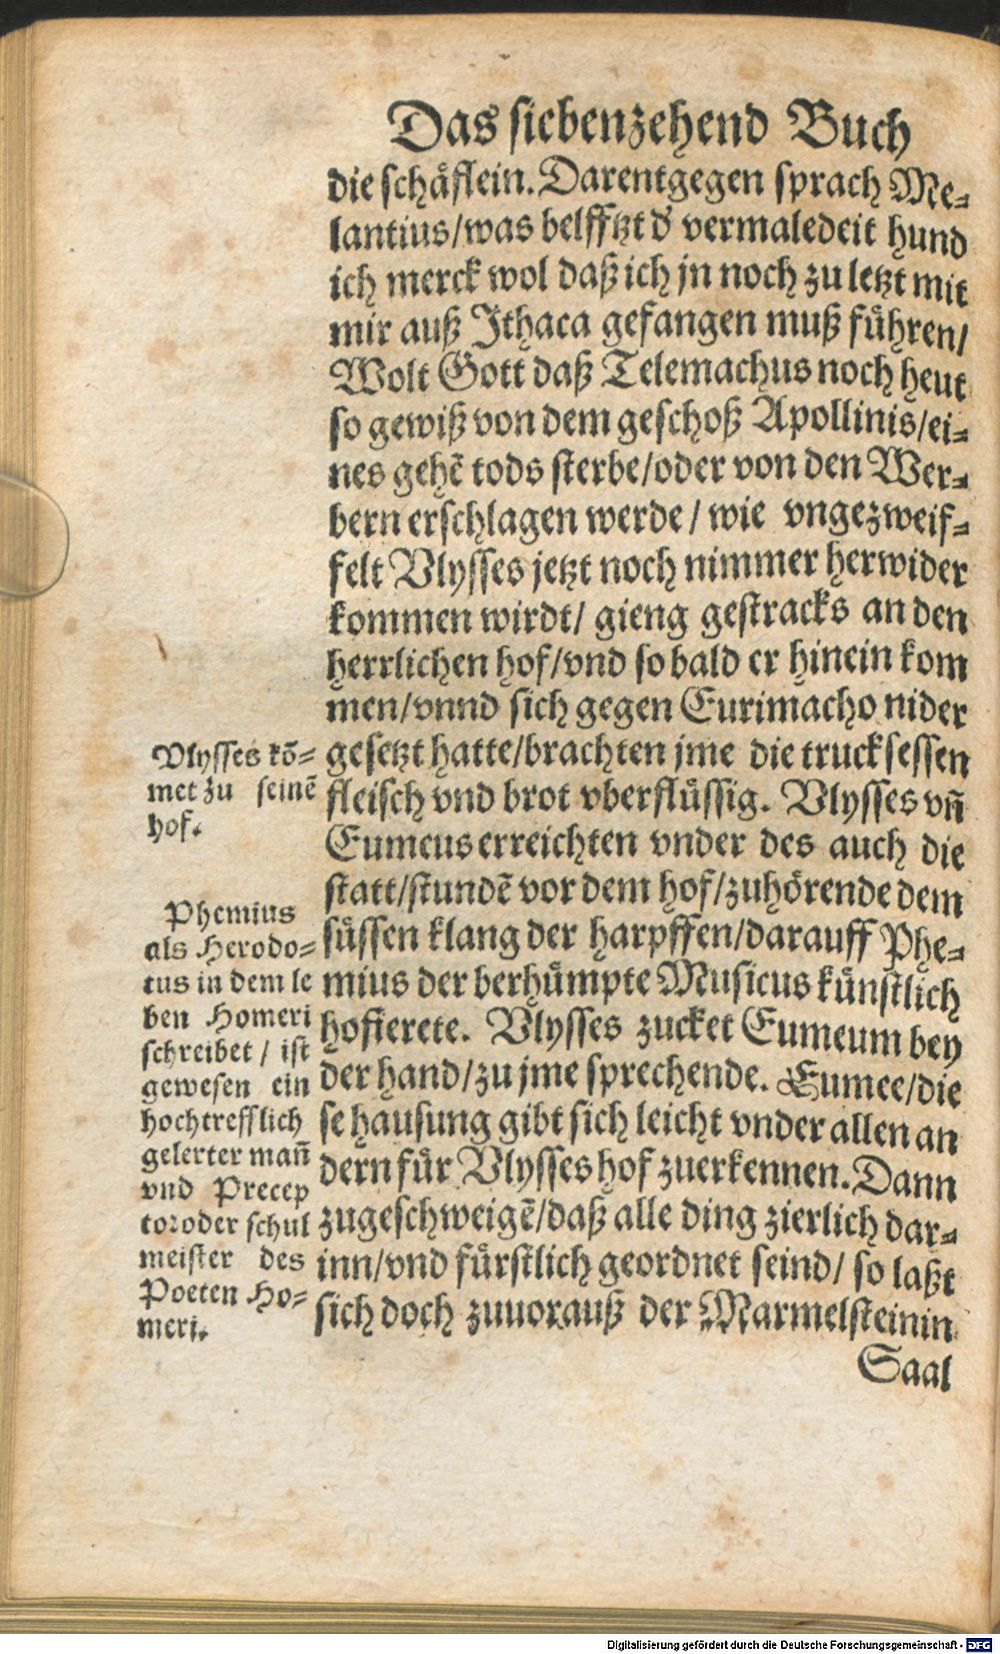 Das siebenzehend Buch
die schåflein. Darentgegen sprach Me⸗
lantius/was belfftzt d' vermaledeit hund
ich merck wol daß ich jn noch zu letzt mit
mir auß Ithaca gefangen muß fůhren/
Wolt Gott daß Telemachus noch heut
so gewiß von dem geschoß Apollinis/ei⸗
nes gehē tods sterbe/oder von den Wer⸗
bern erschlagen werde / wie vngezweif⸗
felt Vlysses jetzt noch nimmer herwider
kommen wirdt/ gieng gestracks an den
herrlichen hof/vnd so bald er hinein kom
men/vnnd sich gegen Eurimacho nider
gesetzt hatte/brachten jme die trucksessen
fleisch vnd brot vberflůssig. Vlysses vñ
Eumeus erreichten vnder des auch die
statt/stundē vor dem hof/zuhőrende dem
sůssen klang der harpffen/darauff Phe⸗
mius der berhůmpte Musicus kůnstlich
hofierete. Vlysses zucket Eumeum bey
der hand/zu jme sprechende. Eumee/die
se hausung gibt sich leicht vnder allen an
dern fůr Vlysses hof zuerkennen. Dann
zugeschweigē/daß alle ding zierlich dar⸗
inn/vnd fůrstlich geordnet seind/ so laßt
sich doch zuuorauß der Marmelsteinin
Saal
Vlysses kō⸗
met zu seinē
hof.
Phemius
als Herodo⸗
tus in dem le
ben Homeri
schreibet / ist
gewesen ein
hochtrefflich
gelerter mañ
vnd Precep
tor oder schul
meister des
Poeten Ho⸗
meri.
Digitalisierung gefördert durch die Deutsche Forschungsgemeinschaft - DFG